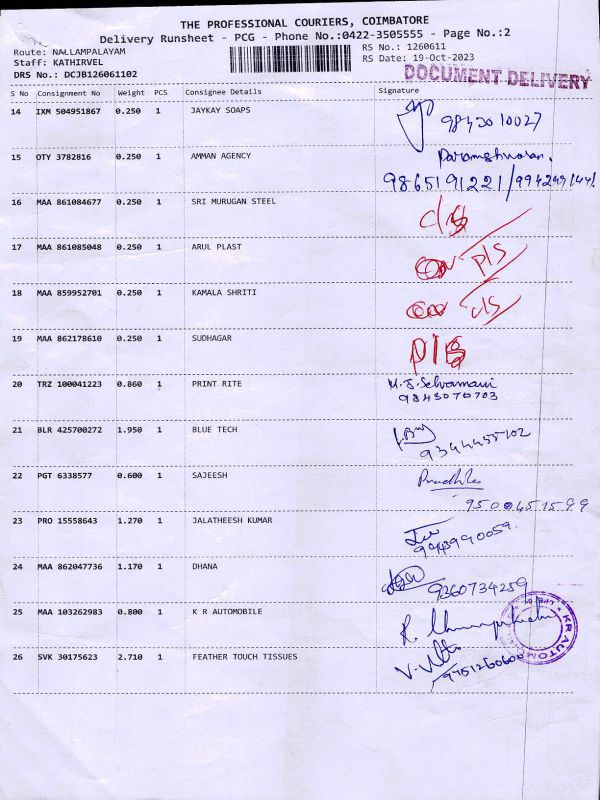 THE PROFESSIONAL COURIERS, COIMBATORE
Delivery Runsheet - PCG - Phone No.:0422-3505555 - Page No.:2
Route: NALLAMPALAYAM
RS No.: 1260611
Staff: KATHIRVEL
RS Date: 19-Oct-2023
DRS No.: DCJB126061102
DOCUMENT DELIVERY
S No Consignment No Weight PCS Consignee Details Signature
14 IXM 504951867 0.250 1 JAYKAY SOAPS
9843010027
15 OTY 3782816 0.250 1 AMMAN AGENCY
9865191221/
16 MAA 861084677 0.250 1 SRI MURUGAN STEEL
17 MAA 861085048 0.250 1 ARUL PLAST
18 MAA 859952701 0.250 1 KAMALA SHRITI
19 MAA 862178610 0.250 1 SUDHAGAR
20 TRZ 100041223 0.860 1 PRINT RITE M.J.Selvamani
9843070703
21 BLR 425700272 1.950 1 BLUE TECH
9344455702
22 PGT 6338577 0.600 1 SAJEESH
9500451599
23 PRO 15558643 1.270 1 JALATHEESH KUMAR
9943990059.
24 MAA 862047736 1.170 1 DHANA
9360734259
25 MAA 103262983 0.800 1 K R AUTOMOBILE
26 SVK 30175623 2.710 1 FEATHER TOUCH TISSUES
9751260600